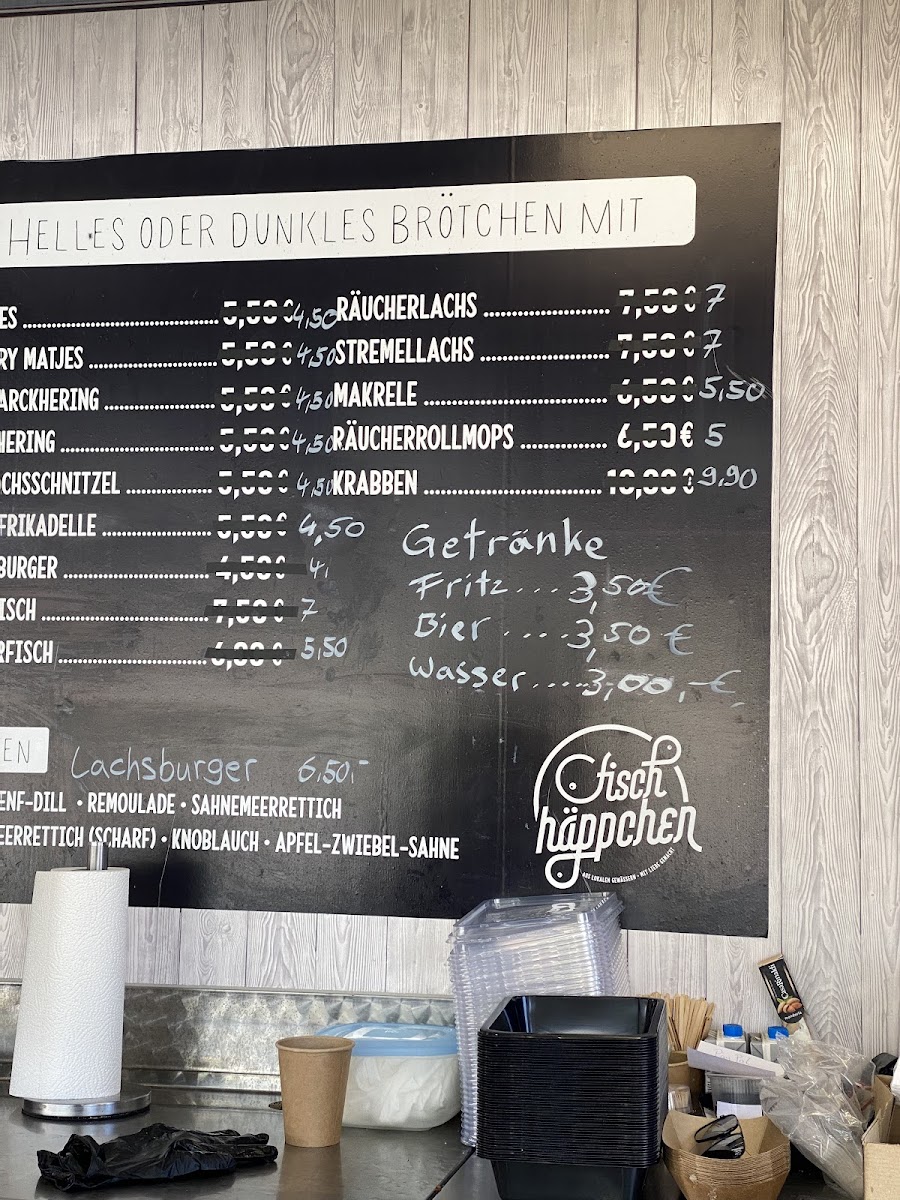 HELLES ODER DUNKLES BRÖTCHEN MIT
ES 5,50 € 4,50
RY MATJES 5,50 € 4,50
ARCKHERING 5,50 € 4,50
HERING 5,50 € 4,50
CHSSCHNITZEL 5,50 € 4,50
FRIKADELLE 5,50 € 4,50
BURGER 4,50 € 4,
ISCH 7,50 € 7
RFISCH 6,00 € 5,50
RÄUCHERLACHS 7,50 € 7
STREMELLACHS 7,50 € 7
MAKRELE 6,50 € 5,50
RÄUCHERROLLMOPS 6,50€ 5
KRABBEN 10,00 € 9,90
Getränke
Fritz... 3,50€
Bier .... 3,50 €
Wasser.... 3,00,-€
EN
Lachsburger 6,50,-
ENF-DILL • REMOULADE • SAHNEMEERRETTICH
EERRETTICH (SCHARF) • KNOBLAUCH • APFEL-ZWIEBEL-SAHNE
fisch
häppchen
AUS LOKALEN GEWÄSSERN • MIT LIEBE GEMACHT